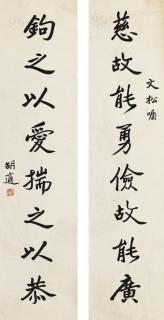 慈故能勇儉故能廣
文松嘯
鉤之以愛揣之以恭
胡適